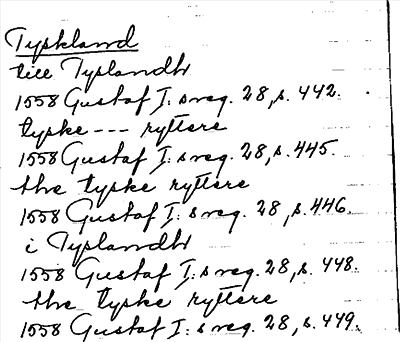 Tyskland
till Tyslandh
1558 Gustaf I: s reg. 28, s. 442.
tyske --- ryttere
1558 Gustaf I: s reg. 28, s. 445.
the tyske ryttere
1558 Gustaf I: s reg. 28, s. 446.
i Tyslandh
1558 Gustaf I: s reg. 28, s. 448.
the tyske ryttere
1558 Gustaf I: s reg. 28, s. 449.